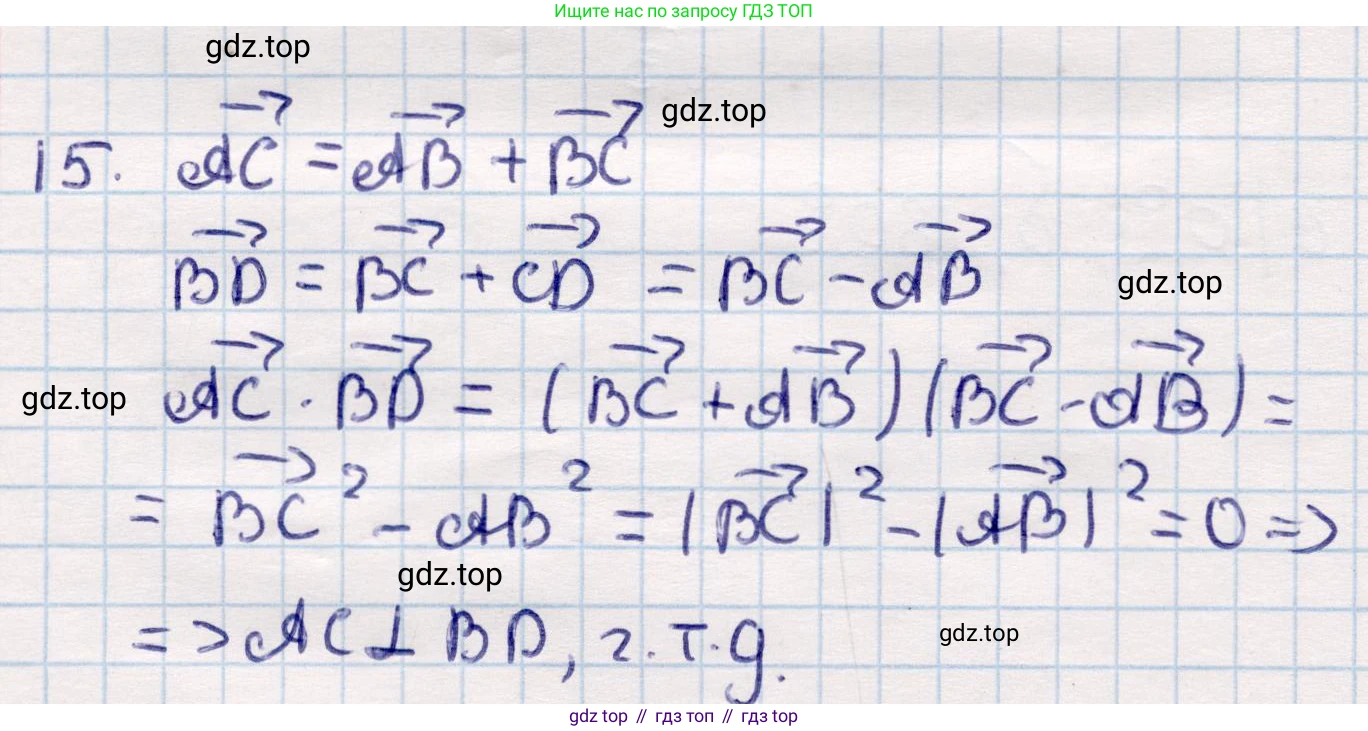 Ищите нас по запросу ГДЗ ТОП
gdz.top
gdz.top
15. AC⃗ = AB⃗ + BC⃗
BD⃗ = BC⃗ + CD⃗ = BC⃗ - AB⃗
gdz.top
gdz.top
AC⃗ · BD⃗ = (BC⃗ + AB⃗)(BC⃗ - AB⃗) =
= BC⃗² - AB² = |BC⃗|² - |AB⃗|² = 0 =>
gdz.top
=> AC ⊥ BD, г.т.д.
gdz.top
gdz top // гдз топ // gdz top